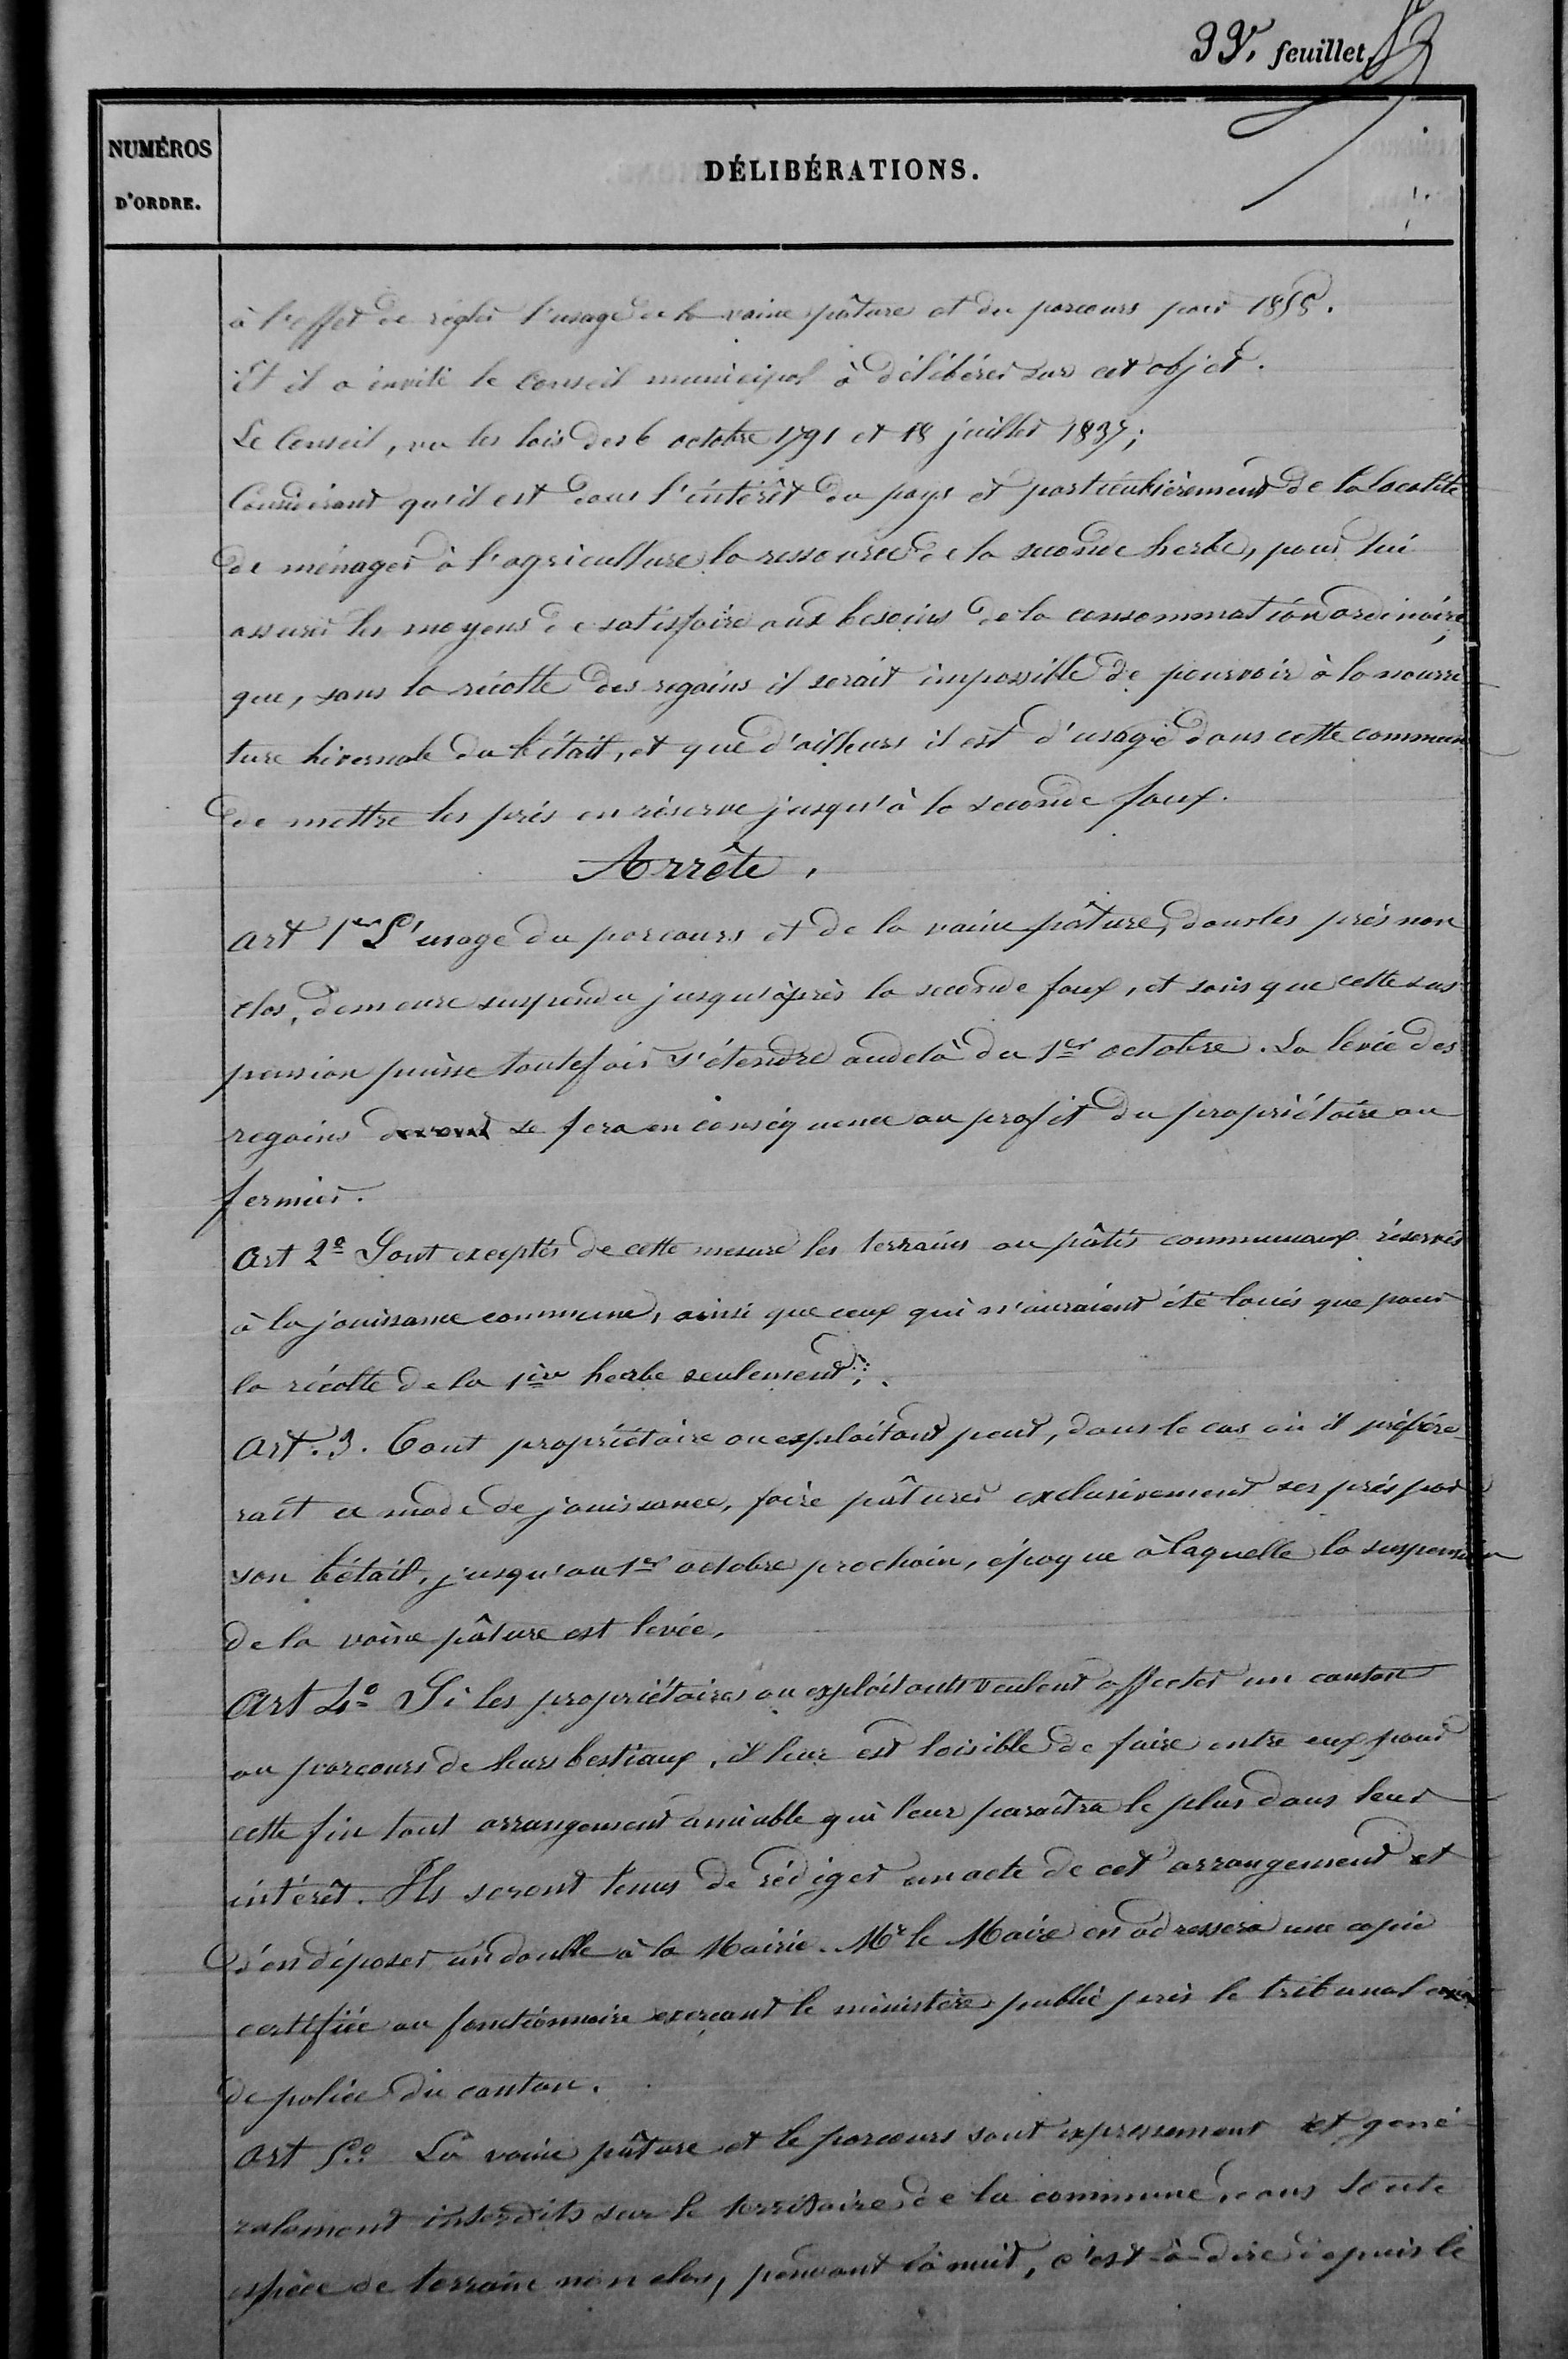 33e feuillet.
NUMÉROS
D'ORDRE.
DÉLIBÉRATIONS.
à l'effet de régler l'usage de la vaine pâture et du parcours pour 1858.
Et il a invité le Conseil municipal à délibérer sur cet objet.
Le Conseil, vu les lois des 6 octobre 1791 et 18 juillet 1837;
Considérant qu'il est dans l'intérêt du pays et particulièrement de la localité
de ménager à l'agriculture la ressource de la seconde herbe, pour lui
assurer les moyens de satisfaire aux besoins de la consommation ordinaire;
que, sans la récolte des regains il serait impossible de pourvoir à la nourri
ture hivernale du bétail, et que d'ailleurs il est d'usage dans cette commune
de mettre les prés en réserve jusqu'à la seconde faux.
Arrête,
Art 1er L'usage du parcours et de la vaine pâture, dans les prés non
clos, demeure suspendu jusqu'après la seconde faux, et sans que cette sus
pension puisse toutefois s'étendre audelà du 1er octobre. La levée des
regains se fera en conséquence au profit du propriétaire ou
fermier.
Art 2e Sont exceptés de cette mesure les terrains ou pâtis communaux réservés
à la jouissance commune, ainsi que ceux qui n'auraient été loués que pour
la récolte de la 1ère herbe seulement;.
Art. 3. Tout propriétaire ou exploitant peut, dans le cas où il préfére-
rait ce mode de jouissance, faire pâturer exclusivement ses prés par
son bétail, jusqu'au 1er octobre prochain, époque à laquelle la suspension
de la vaine pâture est levée,
Art 4e Si les propriétaires ou exploitants veulent affecter un canton
au parcours de leurs bestiaux, il leur est loisible de faire entre eux pour
cette fin tout arrangement amiable qui leur paraîtra le plus dans leur
intérêt. Ils seront tenus de rédiger un acte de cet arrangement et
d'en déposer un double à la Mairie. Mr le Maire en adressera une copie
certifiée au fonctionnaire exerçant le ministère public près le tribunal
de police du canton.
Art 5e La vaine pâture et le parcours sont expressement et géné-
ralement interdits sur le territoire de la commune, dans toute
espèce de terrain non clos, pendant la nuit, c'est-à-dire depuis le